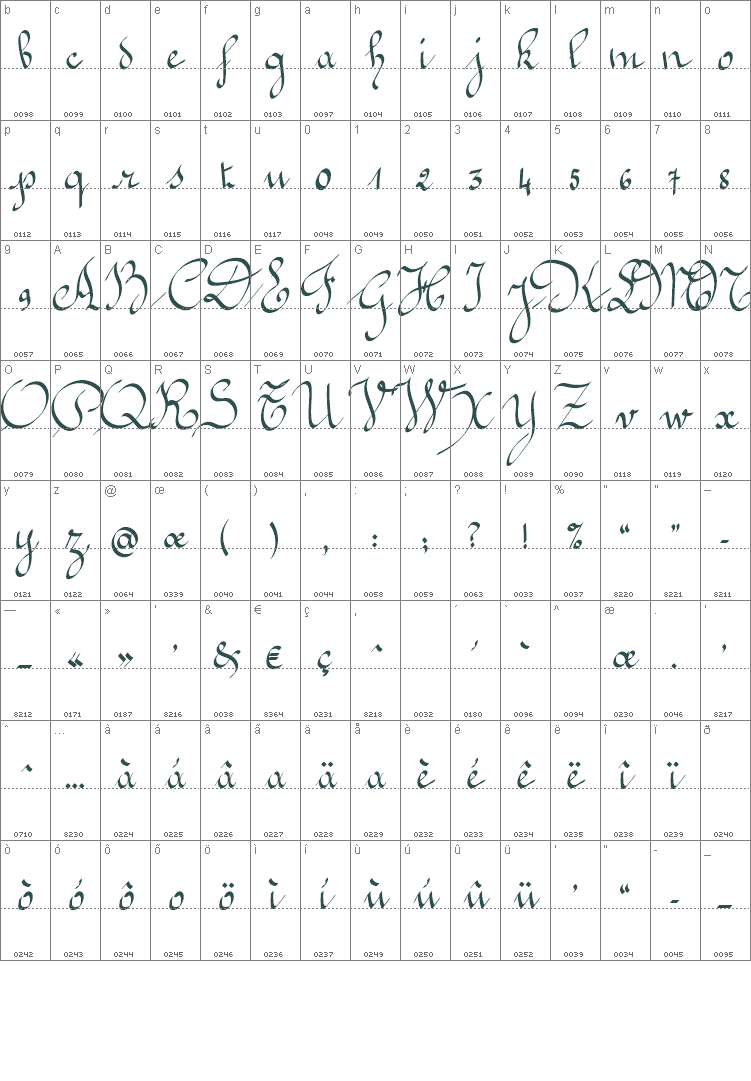 b c d e f g a h i j k l m n o
b c d e f g a h i j k l m n o
0098 0099 0100 0101 0102 0103 0097 0104 0105 0106 0107 0108 0109 0110 0111
p q r s t u 0 1 2 3 4 5 6 7 8
p q r s t u 0 1 2 3 4 5 6 7 8
0112 0113 0114 0115 0116 0117 0048 0049 0050 0051 0052 0053 0054 0055 0056
9 A B C D E F G H I J K L M N
9 A B C D E F G H I J K L M N
0057 0065 0066 0067 0068 0069 0070 0071 0072 0073 0074 0075 0076 0077 0078
O P Q R S T U V W X Y Z v w x
O P Q R S T U V W X Y Z v w x
0079 0080 0081 0082 0083 0084 0085 0086 0087 0088 0089 0090 0118 0119 0120
y z @ œ ( ) , : ; ? ! % " " –
y z @ œ ( ) , : ; ? ! % “ ” –
0121 0122 0064 0339 0040 0041 0044 0058 0059 0063 0033 0037 8220 8221 8211
— « » ' & € ç ‚ ´ ` ^ æ . '
— « » ' & € ç ˆ ´ ` æ . '
8212 0171 0187 8216 0038 8364 0231 8218 0032 0180 0096 0094 0230 0046 8217
ˆ … à á â a̋ ä å è é ê ë î ï ð
ˆ … à á â a ä a è é ê ë î ï
0710 8230 0224 0225 0226 0227 0228 0229 0232 0233 0234 0235 0238 0239 0240
ò ó ô ő ö ì í ù ú û ü ' " - _
ò ó ô o ö ì í ù ú û ü ' “ - _
0242 0243 0244 0245 0246 0236 0237 0249 0250 0251 0252 0039 0034 0045 0095